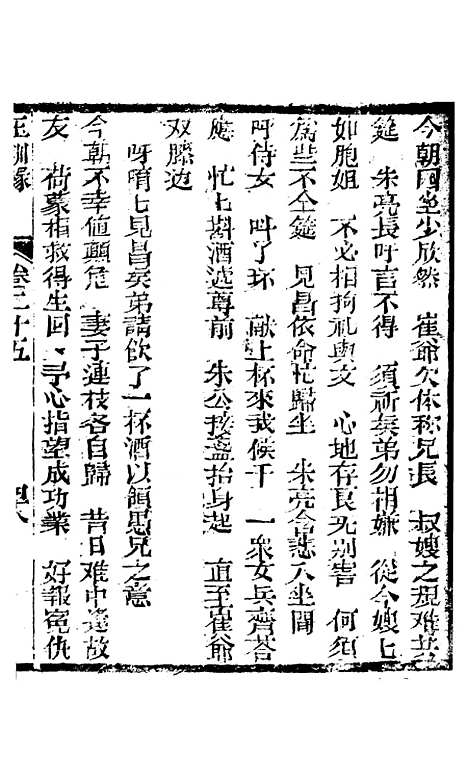 今朝四坐少欣然　崔爺欠体称兄長　叔嫂之規难並
筵　朱亮長吁言不得　須祈矣弟勿相嫌　從今嫂七
如胞姐　不必相拘礼与文　心地存良死别害　何須
為些不全筵　見昌依命忙歸坐　朱亮含悲入坐間
呼侍女　叫了环　献上杯來我候干　一衆女兵齊荅
應　忙上斟酒遞尊前　朱公接盞抬身起　直至崔爺
双膝边
呀唷七見昌矣弟請飲了一杯酒以餌愚兄之意
今朝不幸値顛危　妻子連枝各自歸　昔日难中逢故
友　荷蒙相救得生回　予心指望成功業　好報寃仇
玉釧緣　卷二十五